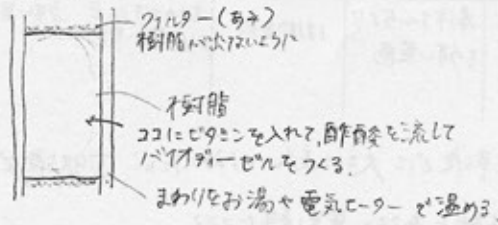 フィルター(あみ)
樹脂が出ないように
樹脂
ココにビタミンを入れて,酢酸を流して
バイオディーゼルをつくる.
まわりをお湯や電気ヒーターで温める